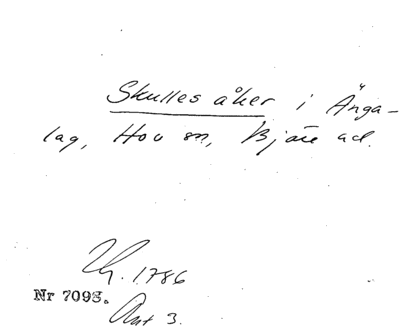 Skulles åker i Änga-
lag, Hov sn, Bjäre hd.
1786
Nr 7098.
Ant 3.